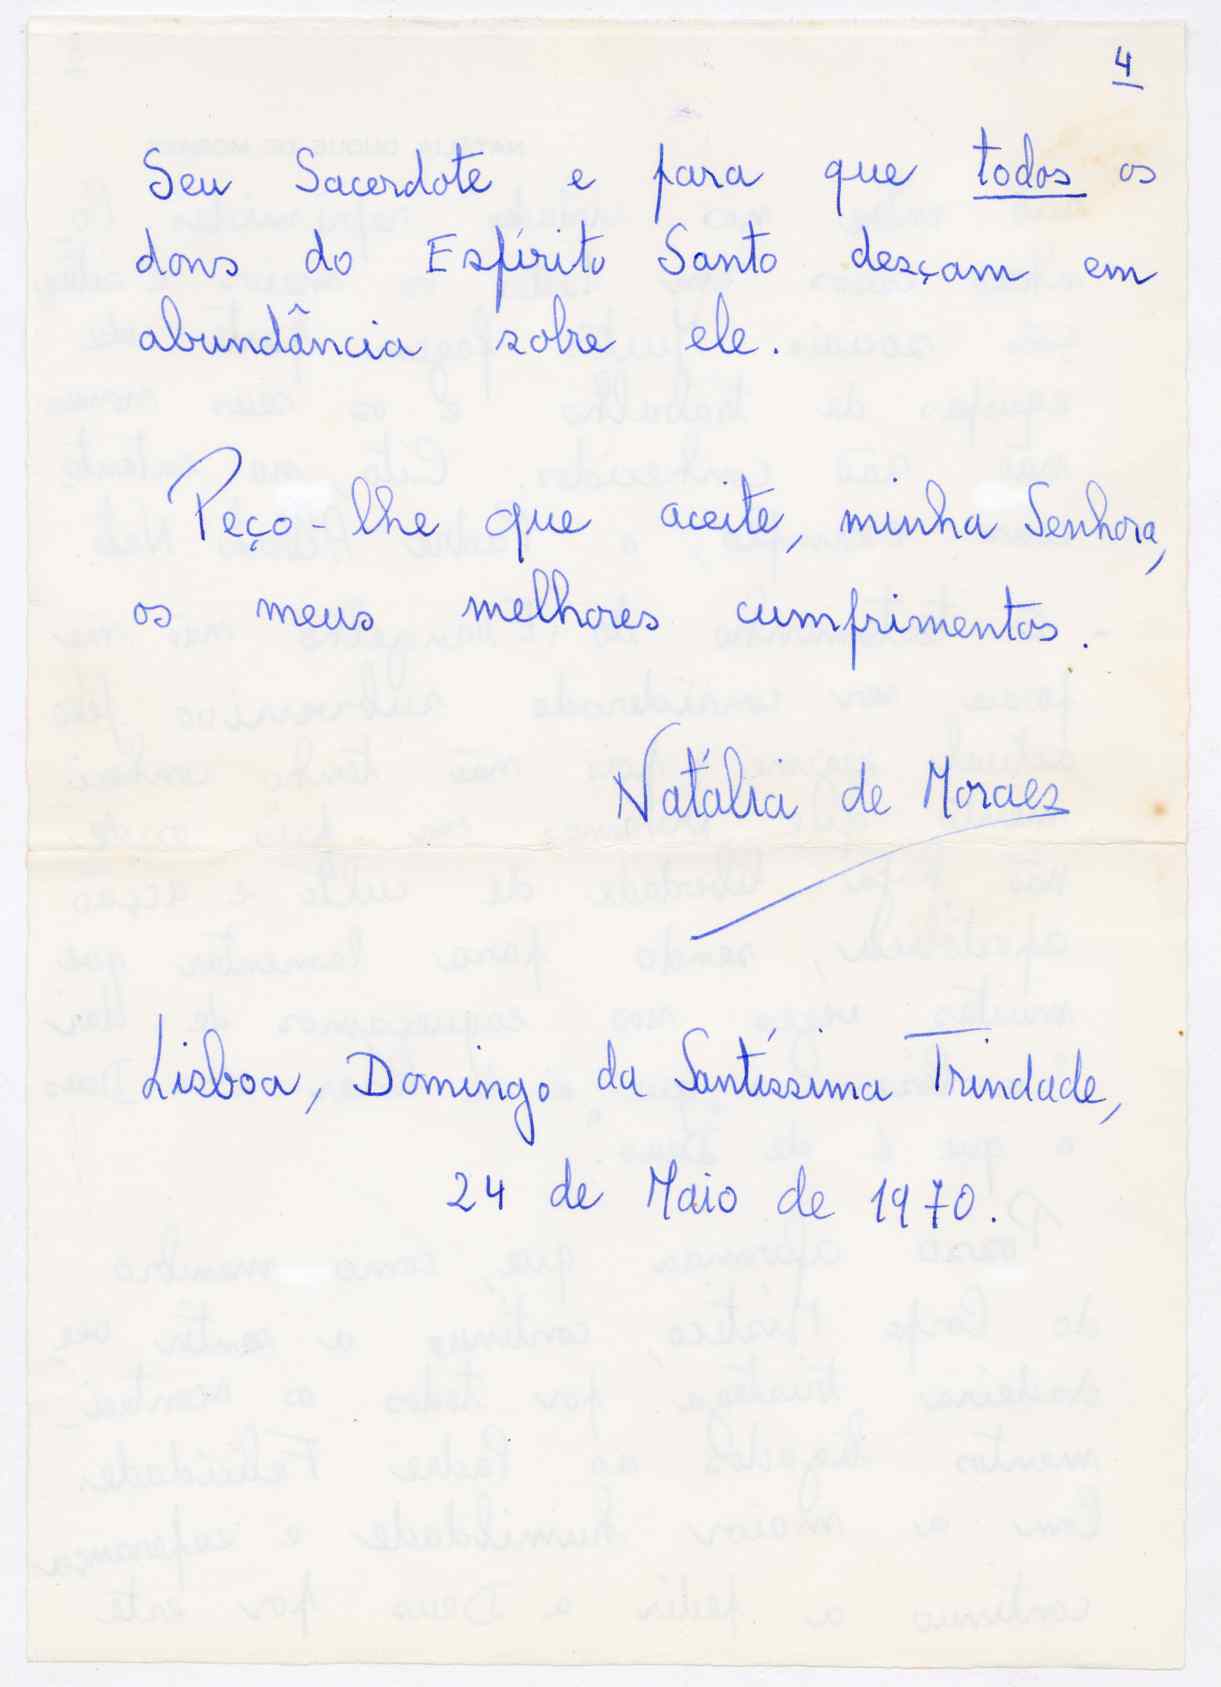 4
Seu Sacerdote e para que todos os
dons do Espírito Santo desçam em
abundância sobre ele.
Peço-lhe que aceite, minha Senhora,
os meus melhores cumprimentos.
Natália de Moraes
Lisboa, Domingo da Santíssima Trindade,
24 de Maio de 1970.